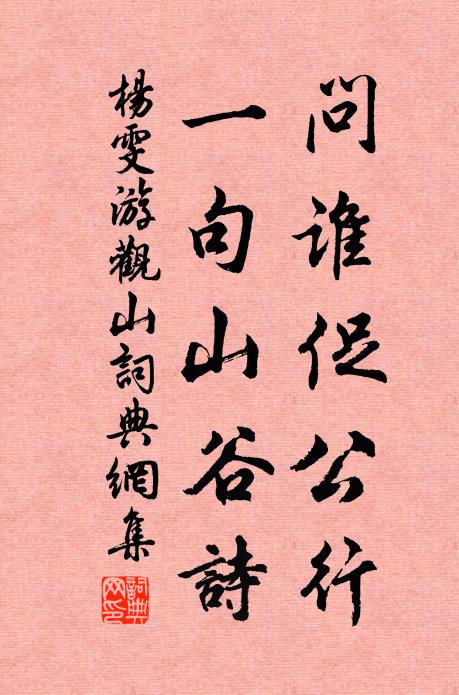 問誰促公行
一句山谷詩
楊雯游觀山詞典網集
詞典網印